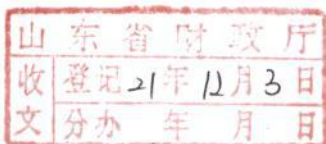 山东省财政厅
收文 登记 21年12月3日
分办 年 月 日